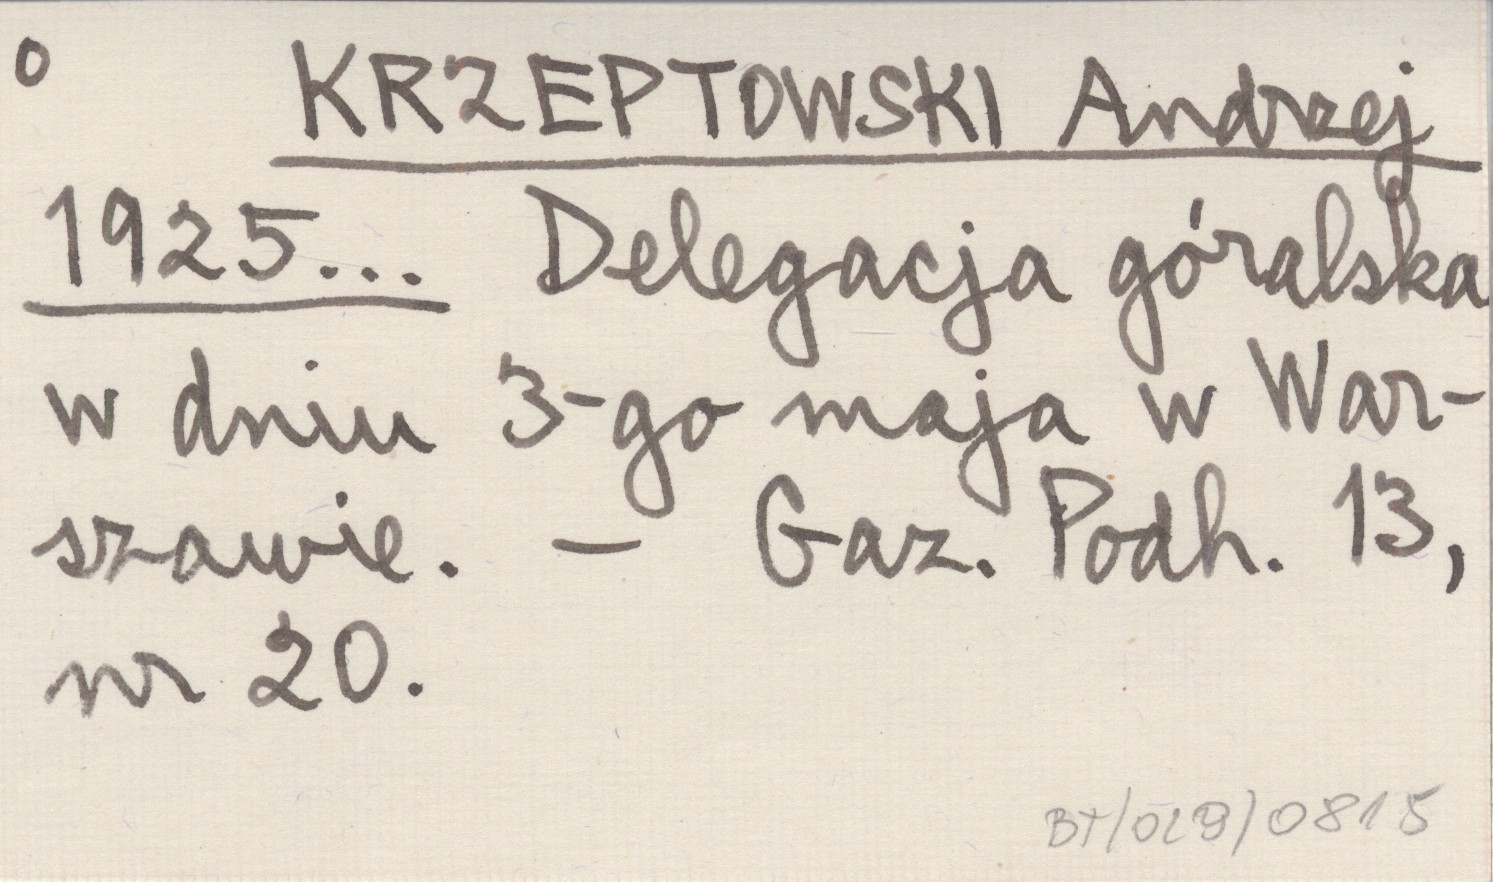 o KRZEPTOWSKI Andrzej
1925... Delegacja góralska
w dniu 3-go maja w War-
szawie. — Gaz. Podh. 13,
nr 20.
BT/OLB/0815